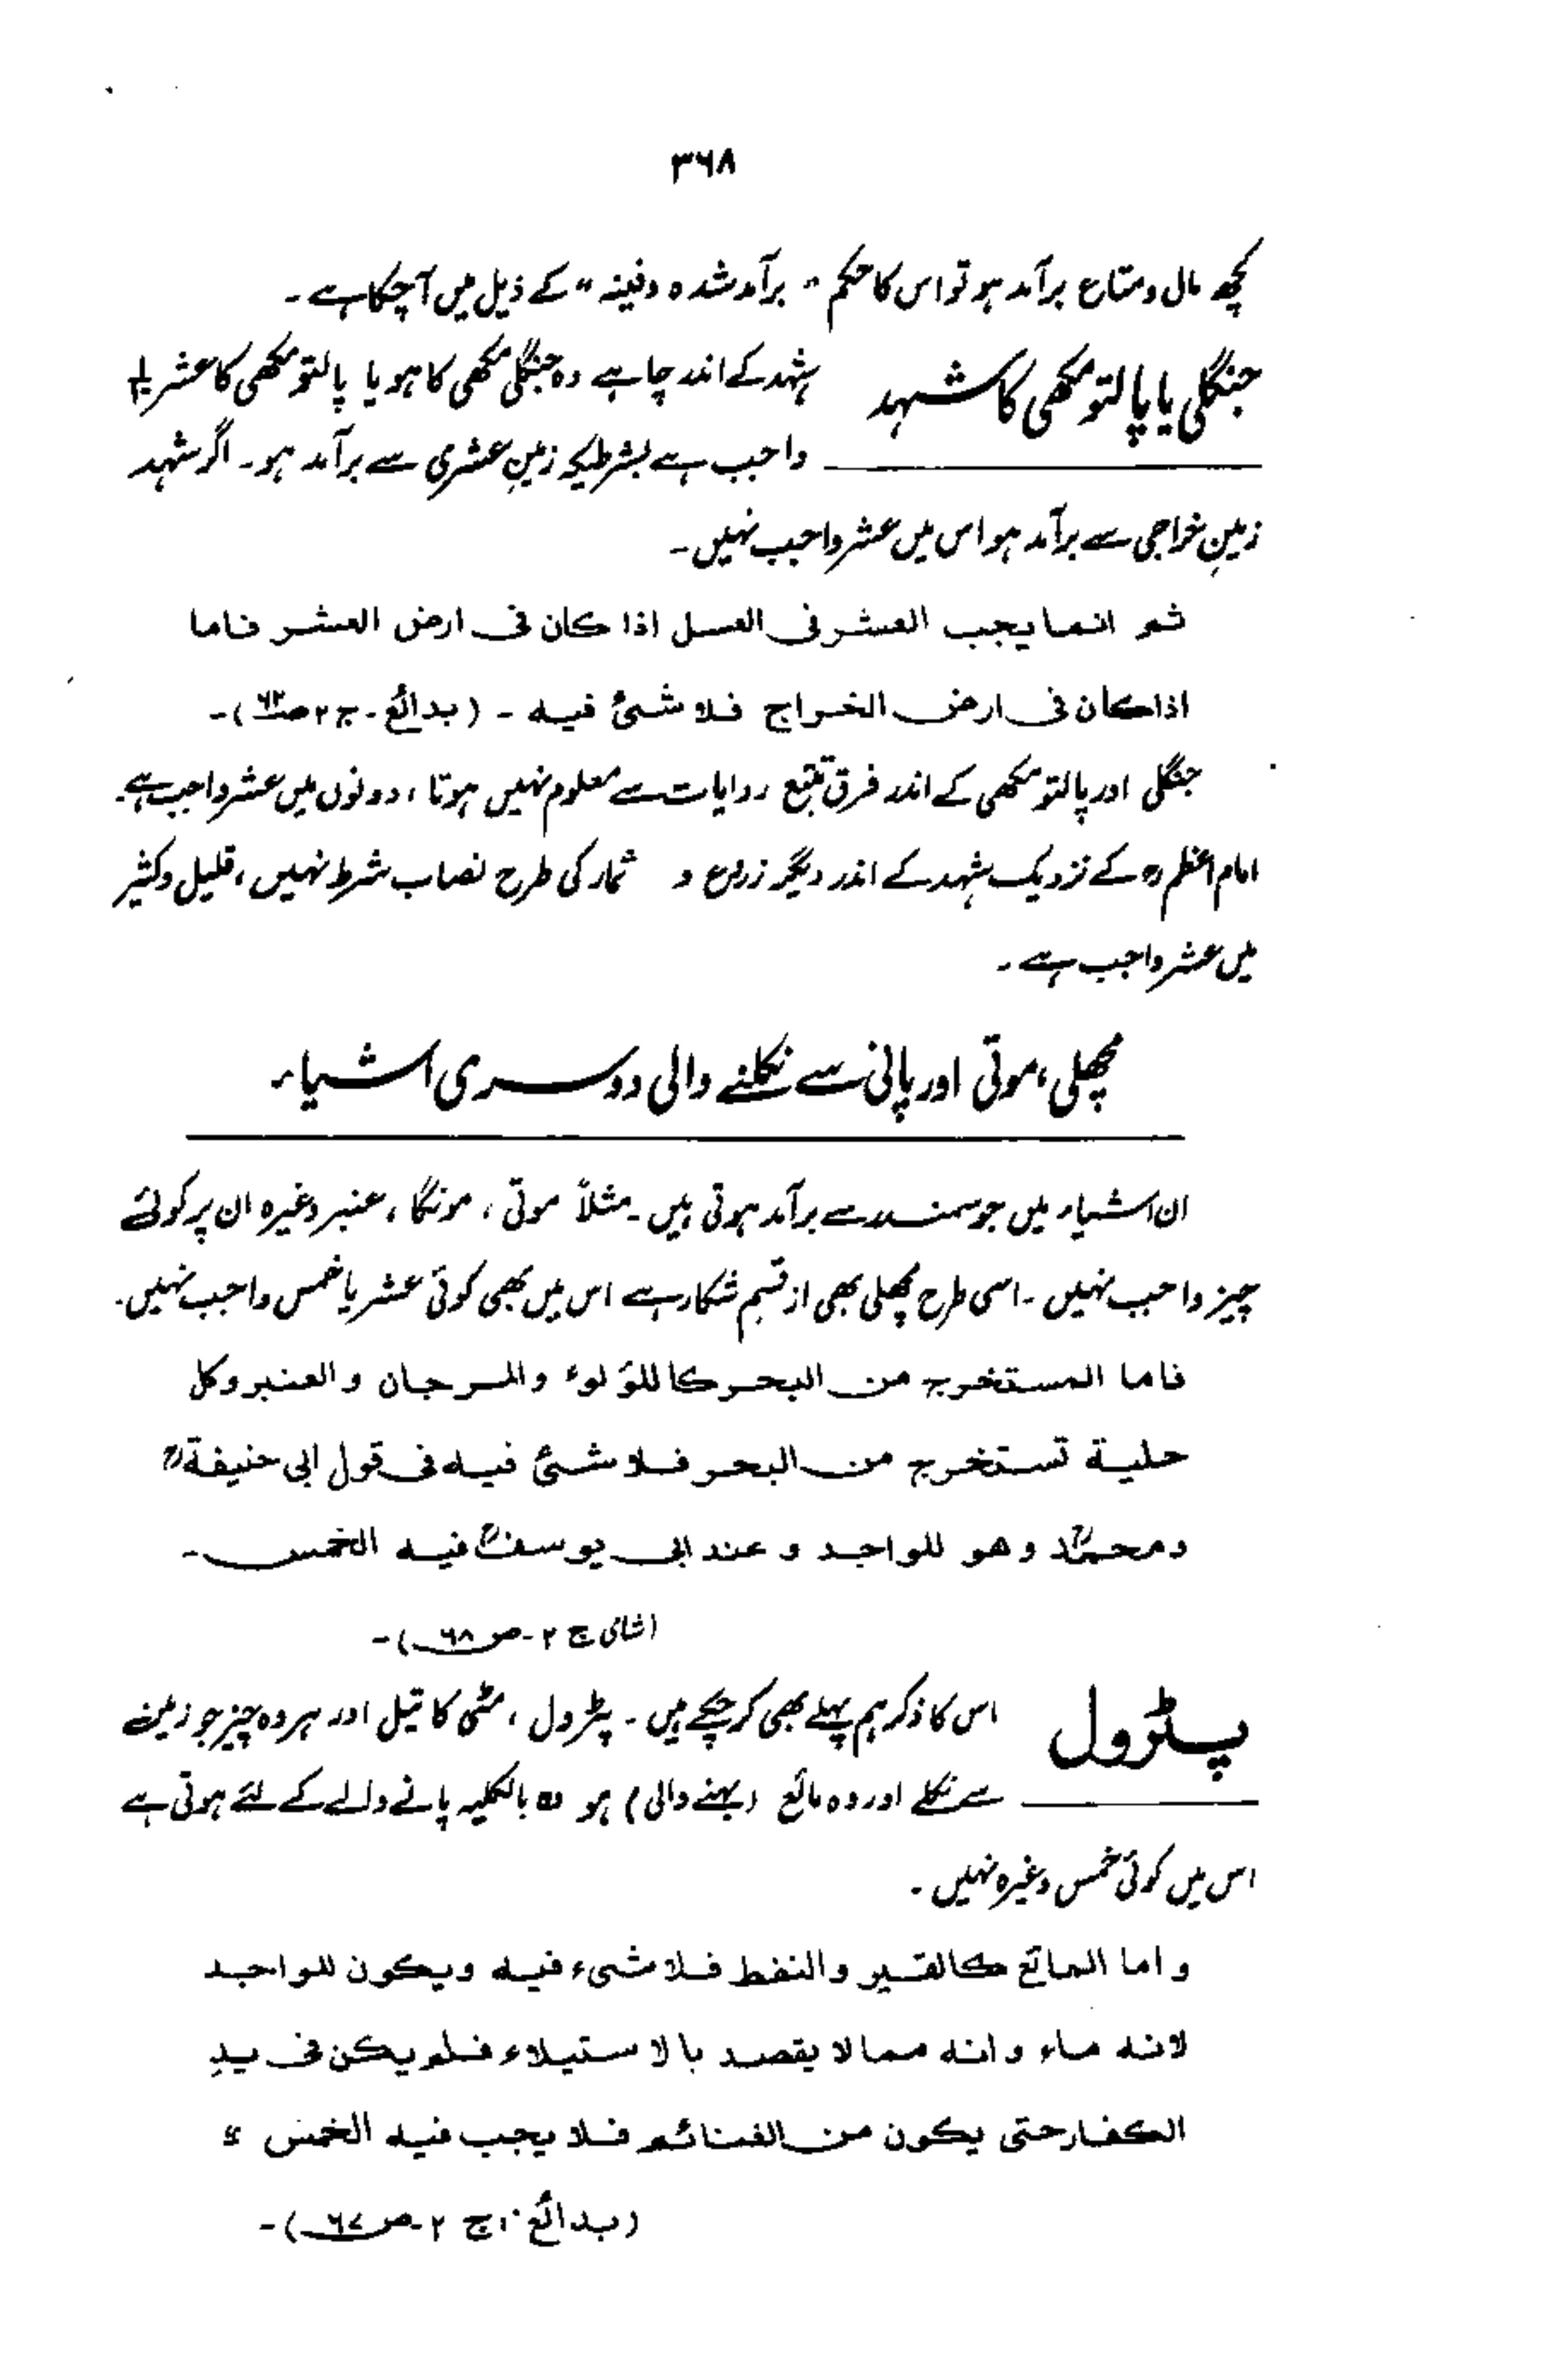 ۳۶۸
کچھ مال و متاع برآمد ہو تو اس کا حکم " برآمد شدہ دفینہ " کے ذیل میں آچکا ہے ۔
جنگلی یا پالتو مکھی کا شہد
شہد کے اندر چاہے وہ جنگلی مکھی کا ہو یا پالتو مکھی کا عشر
واجب ہے بشرطیکہ زمینِ عشری سے برآمد ہو۔ اگر شہد
زمینِ خراجی سے برآمد ہو اس میں عشر واجب نہیں۔
ثم انما یجب العشر فی العسل اذا کان فی ارض العشر فاما
اذا کان فی ارض الخراج فلا شئ فیه ۔ (بدائع ۔ ج ۲ ص ۶۲)۔
جنگلی اور پالتو مکھی کے اندر فرق تتبع روایات سے معلوم نہیں ہوتا ، دونوں میں عشر واجب ہے۔
امام اعظمؒ کے نزدیک شہد کے اندر دیگر زروع و ثمار کی طرح نصاب شرط نہیں ، قلیل و کثیر
میں عشر واجب ہے ۔
مچھلی ، موتی اور پانی سے نکلنے والی دوسری اشیاء
ان اشیاء میں جو سمندر سے برآمد ہوتی ہیں ۔ مثلاً موتی ، مونگا ، عنبر وغیرہ ان پر کوئی
چیز واجب نہیں ۔ اسی طرح مچھلی بھی از قسم شکار ہے اس میں بھی کوئی عشر یا خمس واجب نہیں۔
فاما المستخرج من البحر کاللؤلوء والمرجان والعنبر وکل
حلیة تستخرج من البحر فلا شئ فیه فی قول ابی حنیفةؒ
ومحمدؒ وهو للواجد وعند ابی یوسفؒ فیه الخمس۔
(شامی ج ۲ ۔ ص ۶۸)۔
پٹرول
اس کا ذکر ہم پہلے بھی کر چکے ہیں ۔ پٹرول ، مٹی کا تیل اور ہر وہ چیز جو زمین
سے نکلے اور وہ مائع (بہنے والی) ہو وہ بالکلیہ پانے والے کے لئے ہوتی ہے
اس میں کوئی خمس وغیرہ نہیں ۔
واما المائع کالقیر والنفط فلا شیء فیه ویکون للواجد
لانه ماء وانه مما لا یقصد بالاستیلاء فلم یکن فی یدِ
الکفار حتی یکون من الغنائم فلا یجب فیه الخمس "
(بدائع ، ج ۲ ۔ ص ۶۷)۔